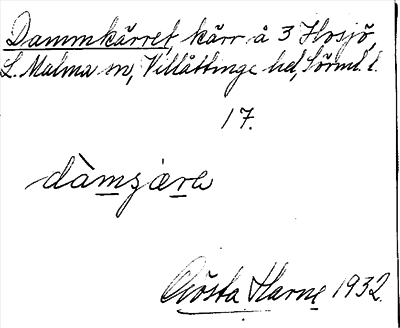 Dammkärret, kärr å 3 Hosjö,
L. Malma sn, Villåttinge hd, Sörml. l.
17.
dàmɟære
Gösta Harne 1932.